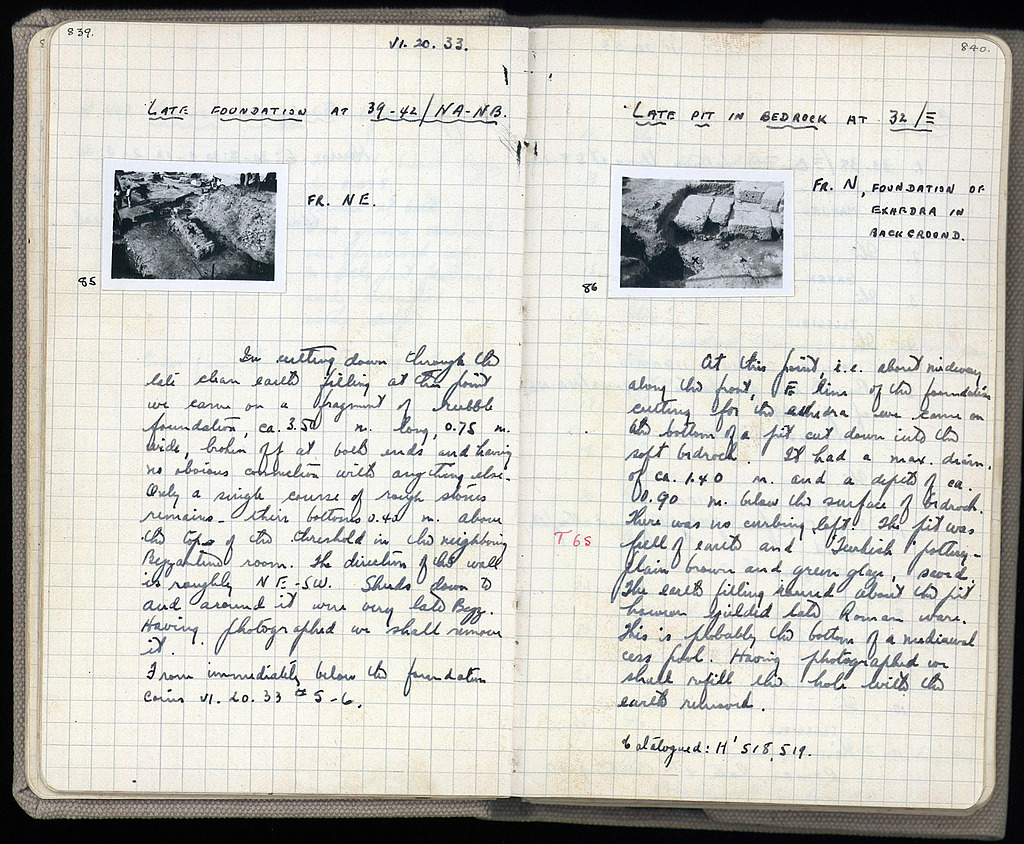 839.
VI. 20. 33.
LATE FOUNDATION AT 39-42/NA-NB.
FR. NE.
85
In cutting down through the
late clean earth filling at this point
we came on a fragment of rubble
foundation, ca. 3.50 m. long, 0.75 m.
wide, broken off at both ends and having
no obvious connection with anything else.
Only a single course of rough stones
remains - their bottoms 0.40 m. above
the top of the threshold in the neighboring
Byzantine room. The direction of the wall
is roughly NE-SW. Sherds down to
and around it were very late Byz.
Having photographed we shall remove
it.
From immediately below the foundation
coins VI. 20. 33 # 5-6.
840.
LATE PIT IN BEDROCK AT 32/Ξ
FR. N, FOUNDATION OF
EXHEDRA IN
BACKGROUND.
86
At this point, i.e. about midway
along the front, E line of the foundation
cutting for the exhedra we came on
the bottom of a pit cut down into the
soft bedrock. It had a max. diam.
of ca. 1.40 m. and a depth of ca.
0.90 m. below the surface of bedrock.
There was no curbing left. The pit was
T 65
full of earth and "Turkish" pottery -
plain brown and green glaze, saved.
The earth filling around about the pit
however yielded late Roman ware.
This is probably the bottom of a mediaeval
cess pool. Having photographed we
shall refill the hole with the
earth removed.
Catalogued: H' 518, 519.